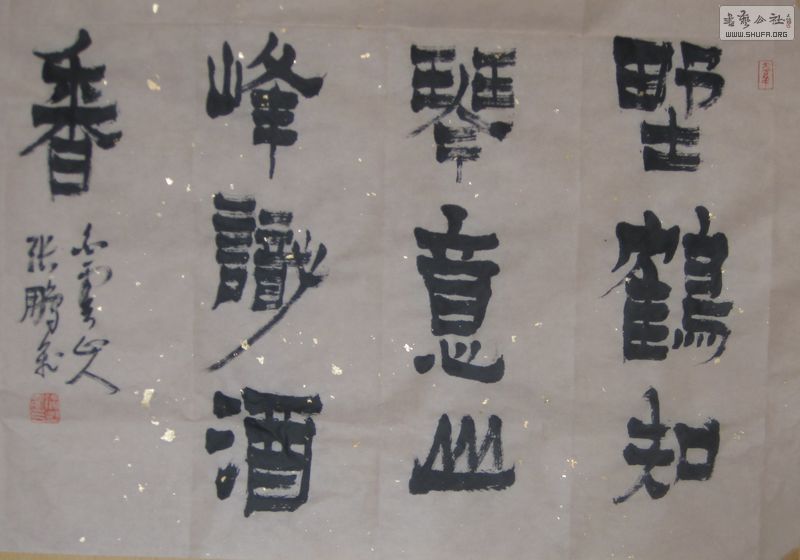 野鶴知
琴意山
峰識酒
香
山人
張鵬
書藝公社
WWW.SHUFA.ORG